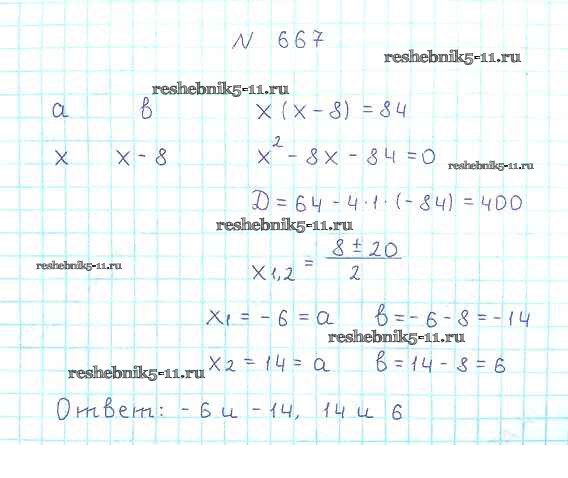 N 667
reshebnik5-11.ru
reshebnik5-11.ru
a в x(x-8)=84
x x-8 x²-8x-84=0
reshebnik5-11.ru
D=64-4·1·(-84)=400
reshebnik5-11.ru
reshebnik5-11.ru
x1,2 = (8±20)/2
x1=-6=a в=-6-8=-14
reshebnik5-11.ru
x2=14=a в=14-8=6
reshebnik5-11.ru
Ответ: -6 и -14, 14 и 6